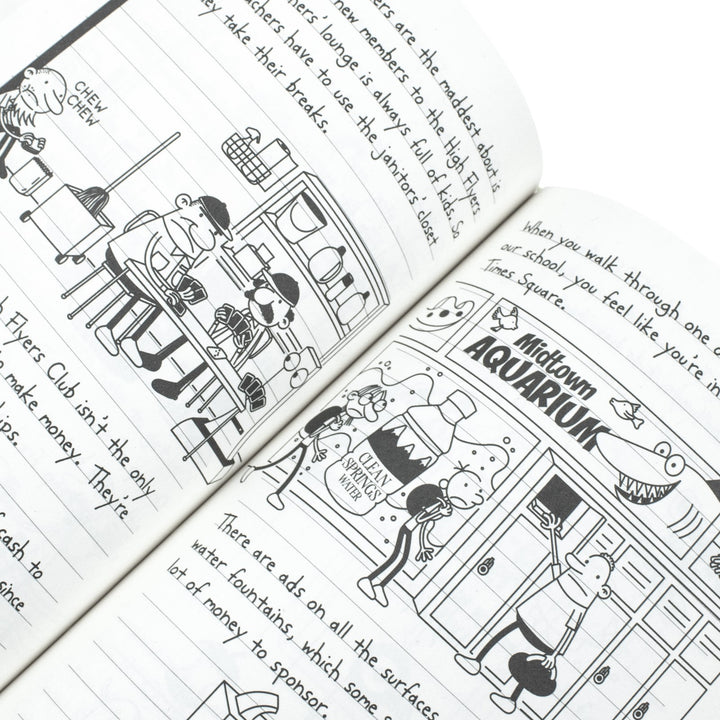 ers are the maddest about is
new members to the High Flyers
ers' lounge is always full of kids. So
achers have to use the janitors' closet
ey take their breaks.
CHEW
CHEW
h Flyers Club isn't the only
to make money. They're
cash to
since
When you walk through one o
our school, you feel like you're in
Times Square.
Midtown
AQUARIUM
CLEAN
SPRINGS
WATER
There are ads on all the surfaces
water fountains, which some
lot of money to sponsor.